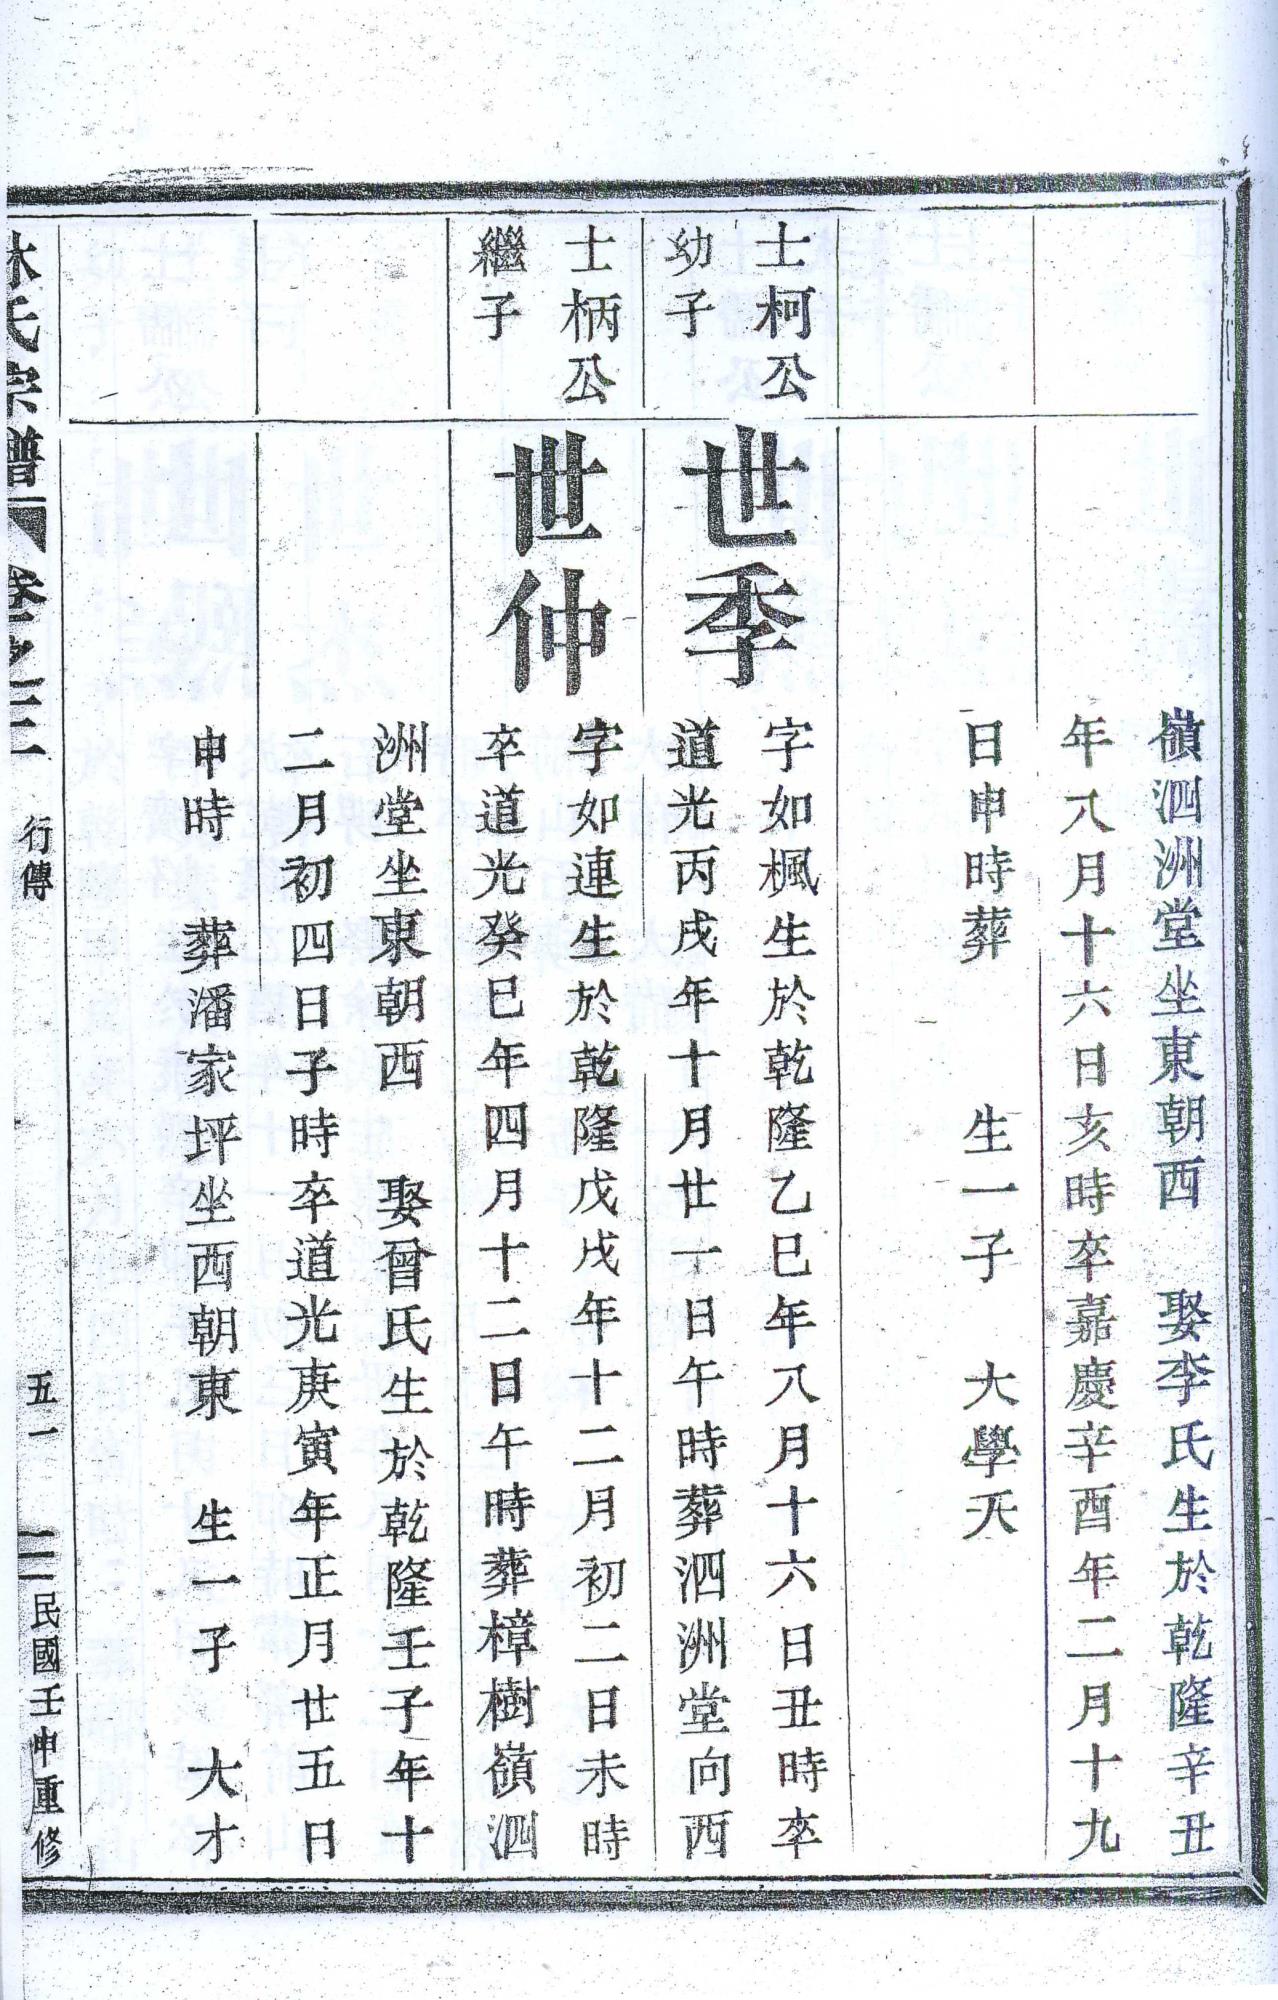 嶺泗洲堂坐東朝西 娶李氏生於乾隆辛丑
年八月十六日亥時卒嘉慶辛酉年二月十九
日申時葬 生一子 大學夭
士柯公
幼子
世季
字如楓生於乾隆乙巳年八月十六日丑時卒
道光丙戌年十月廿一日午時葬泗洲堂向西
士柄公
繼子
世仲
字如連生於乾隆戊戌年十二月初二日未時
卒道光癸巳年四月十二日午時葬樟樹嶺泗
洲堂坐東朝西 娶曾氏生於乾隆壬子年十
二月初四日子時卒道光庚寅年正月廿五日
申時 葬潘家坪坐西朝東 生一子 大才
林氏宗譜 卷之三 行傳 五一 民國壬申重修